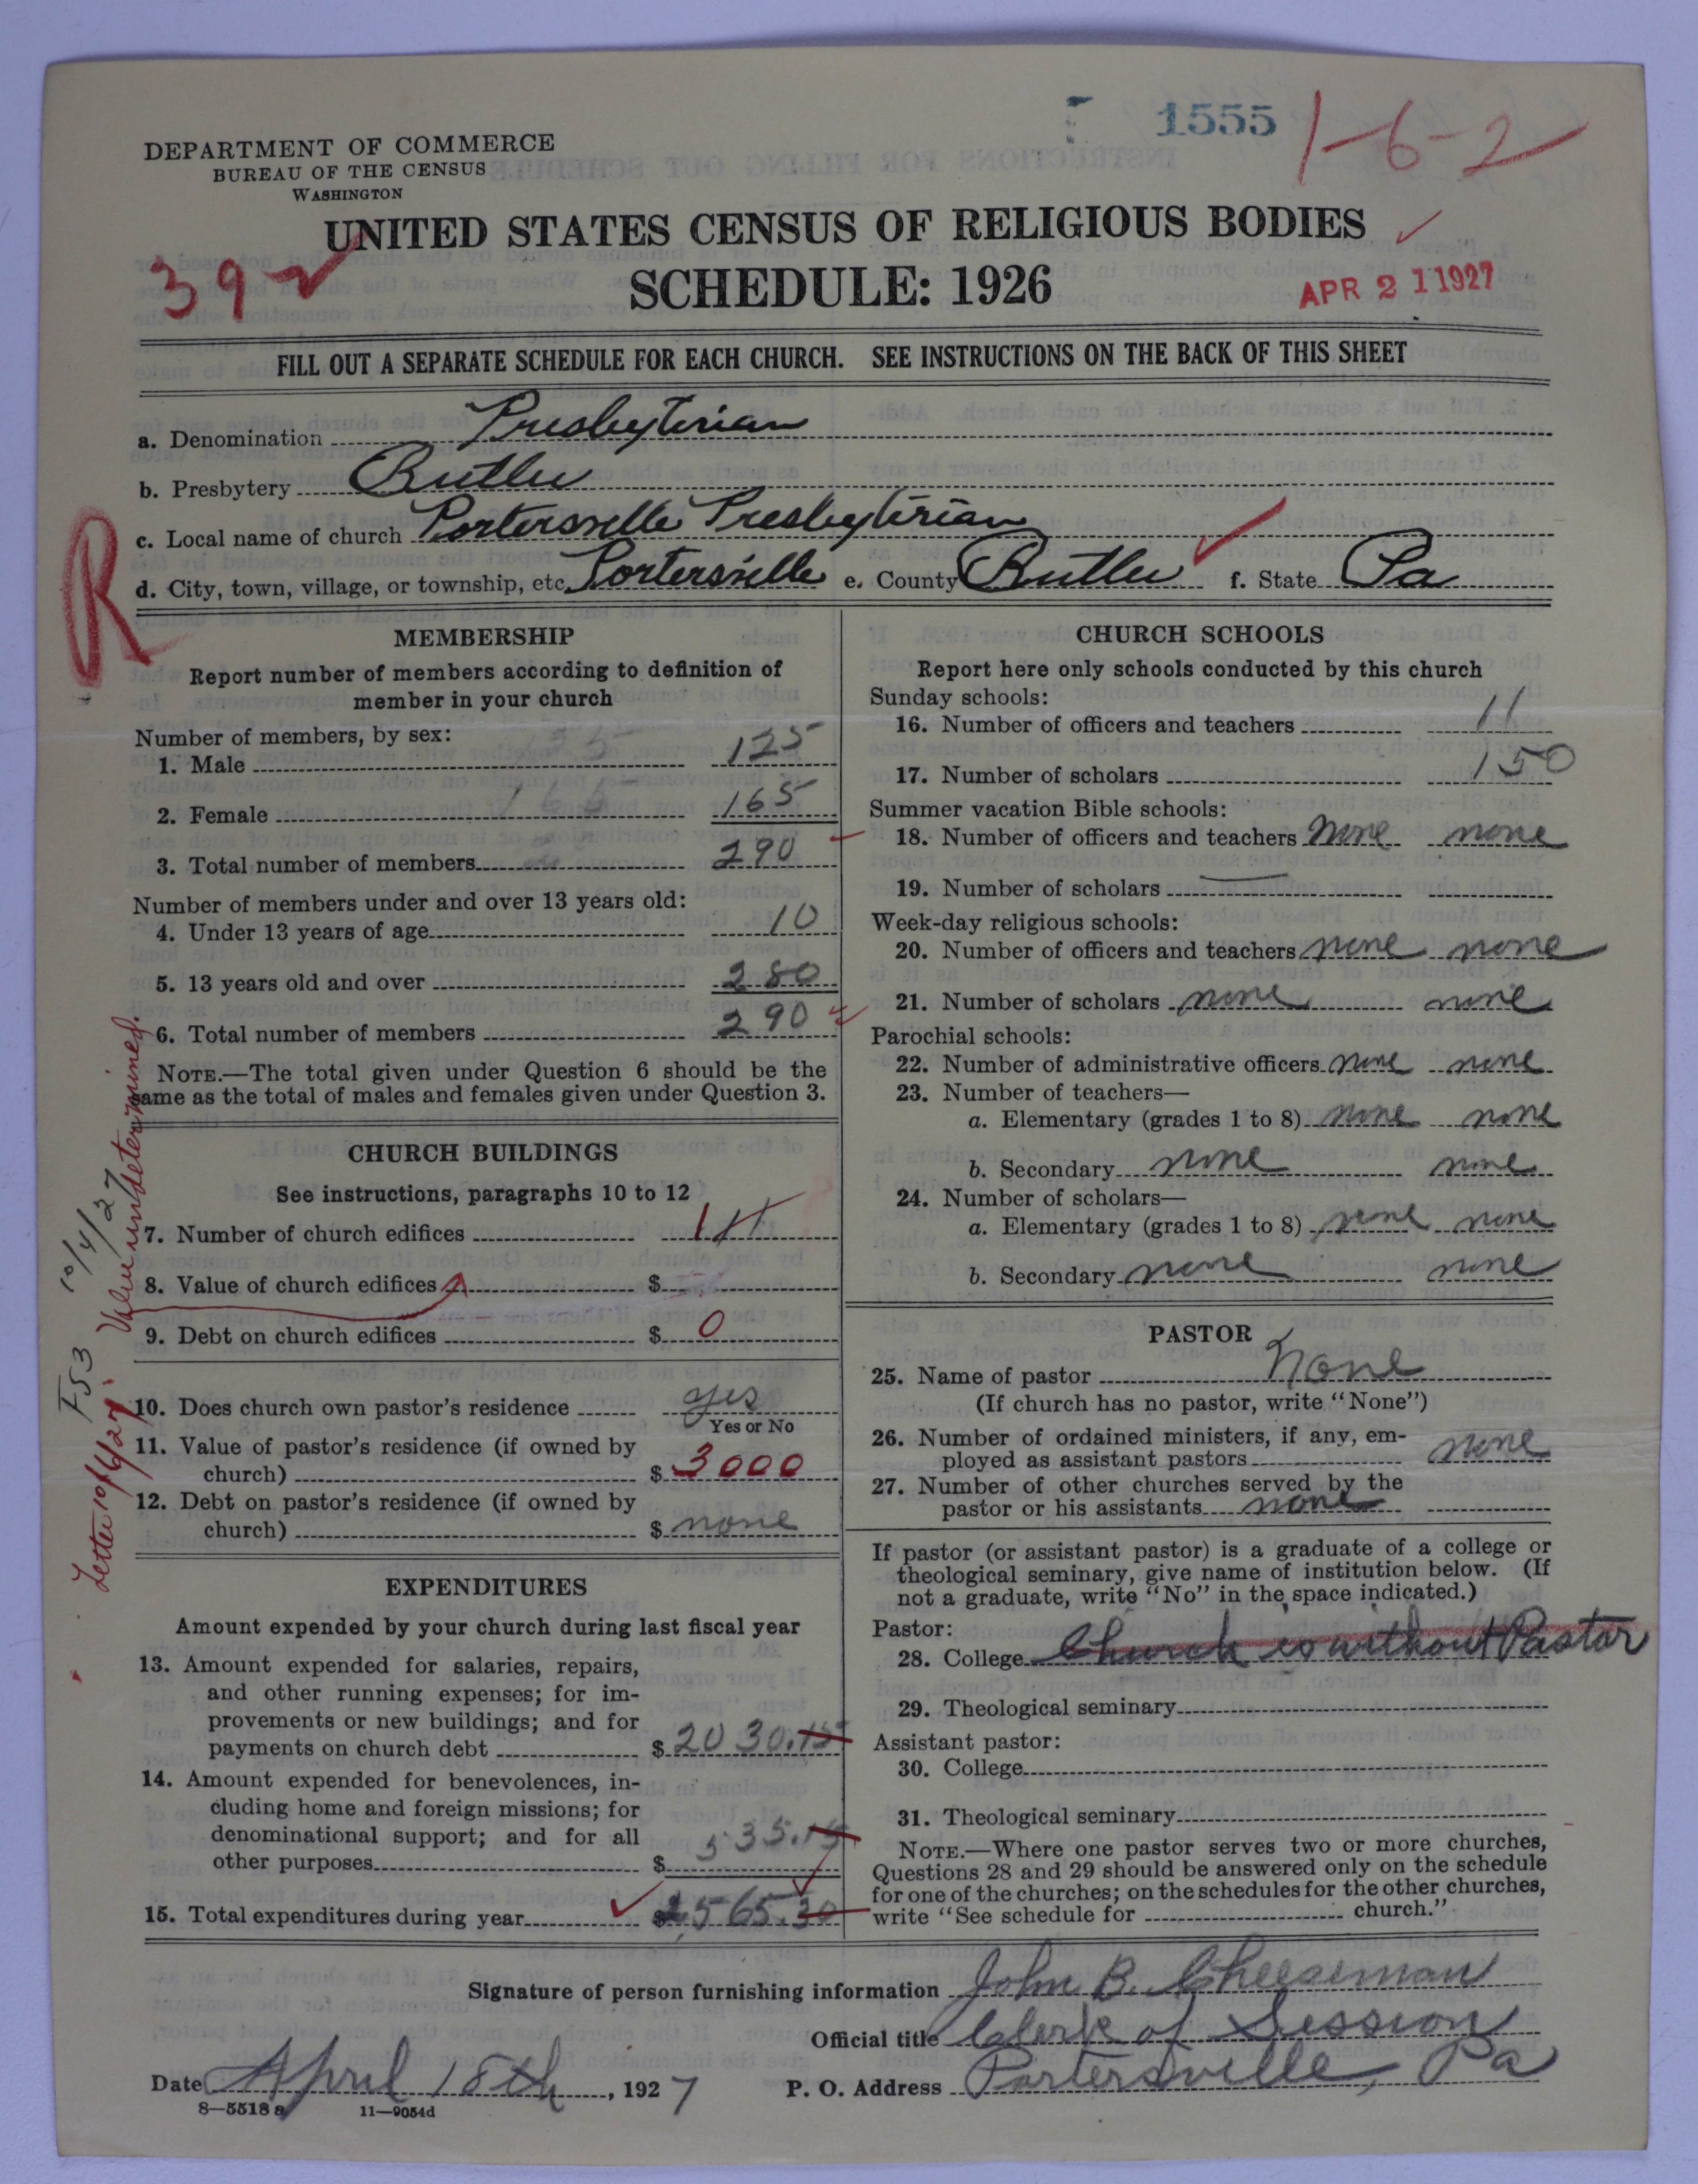 1555
1-6-2
DEPARTMENT OF COMMERCE
BUREAU OF THE CENSUS
WASHINGTON
UNITED STATES CENSUS OF RELIGIOUS BODIES
SCHEDULE: 1926
392
APR 21 1927
FILL OUT A SEPARATE SCHEDULE FOR EACH CHURCH. SEE INSTRUCTIONS ON THE BACK OF THIS SHEET
a. Denomination Presbyterian
b. Presbytery Butler
c. Local name of church Portersville Presbyterian
R
d. City, town, village, or township, etc. Portersville e. County Butler f. State Pa
MEMBERSHIP
Report number of members according to definition of
member in your church
Number of members, by sex:
1. Male 125
2. Female 165
3. Total number of members 290
Number of members under and over 13 years old:
4. Under 13 years of age 10
5. 13 years old and over 280
6. Total number of members 290
NOTE.—The total given under Question 6 should be the
same as the total of males and females given under Question 3.
CHURCH BUILDINGS
See instructions, paragraphs 10 to 12
7. Number of church edifices 1
8. Value of church edifices $
9. Debt on church edifices $ 0
10. Does church own pastor's residence yes
Yes or No
11. Value of pastor's residence (if owned by
church) $ 3000
12. Debt on pastor's residence (if owned by
church) $ none
Letter 10/6/27. Value undetermined.
F53 10/4/27
EXPENDITURES
Amount expended by your church during last fiscal year
13. Amount expended for salaries, repairs,
and other running expenses; for im-
provements or new buildings; and for
payments on church debt $ 2030.15
14. Amount expended for benevolences, in-
cluding home and foreign missions; for
denominational support; and for all
other purposes $ 535.15
15. Total expenditures during year $ 2,565.30
CHURCH SCHOOLS
Report here only schools conducted by this church
Sunday schools:
16. Number of officers and teachers 11
17. Number of scholars 150
Summer vacation Bible schools:
18. Number of officers and teachers none none
19. Number of scholars
Week-day religious schools:
20. Number of officers and teachers none none
21. Number of scholars none none
Parochial schools:
22. Number of administrative officers none none
23. Number of teachers—
a. Elementary (grades 1 to 8) none none
b. Secondary none none
24. Number of scholars—
a. Elementary (grades 1 to 8) none none
b. Secondary none none
PASTOR
25. Name of pastor None
(If church has no pastor, write "None")
26. Number of ordained ministers, if any, em-
ployed as assistant pastors none
27. Number of other churches served by the
pastor or his assistants none
If pastor (or assistant pastor) is a graduate of a college or
theological seminary, give name of institution below. (If
not a graduate, write "No" in the space indicated.)
Pastor:
28. College Church is without Pastor
29. Theological seminary
Assistant pastor:
30. College
31. Theological seminary
NOTE.—Where one pastor serves two or more churches,
Questions 28 and 29 should be answered only on the schedule
for one of the churches; on the schedules for the other churches,
write "See schedule for church."
Signature of person furnishing information John B. Cheeseman
Official title Clerk of Session
Date April 18th, 1927 P. O. Address Portersville, Pa
8—5518 a 11—9054d